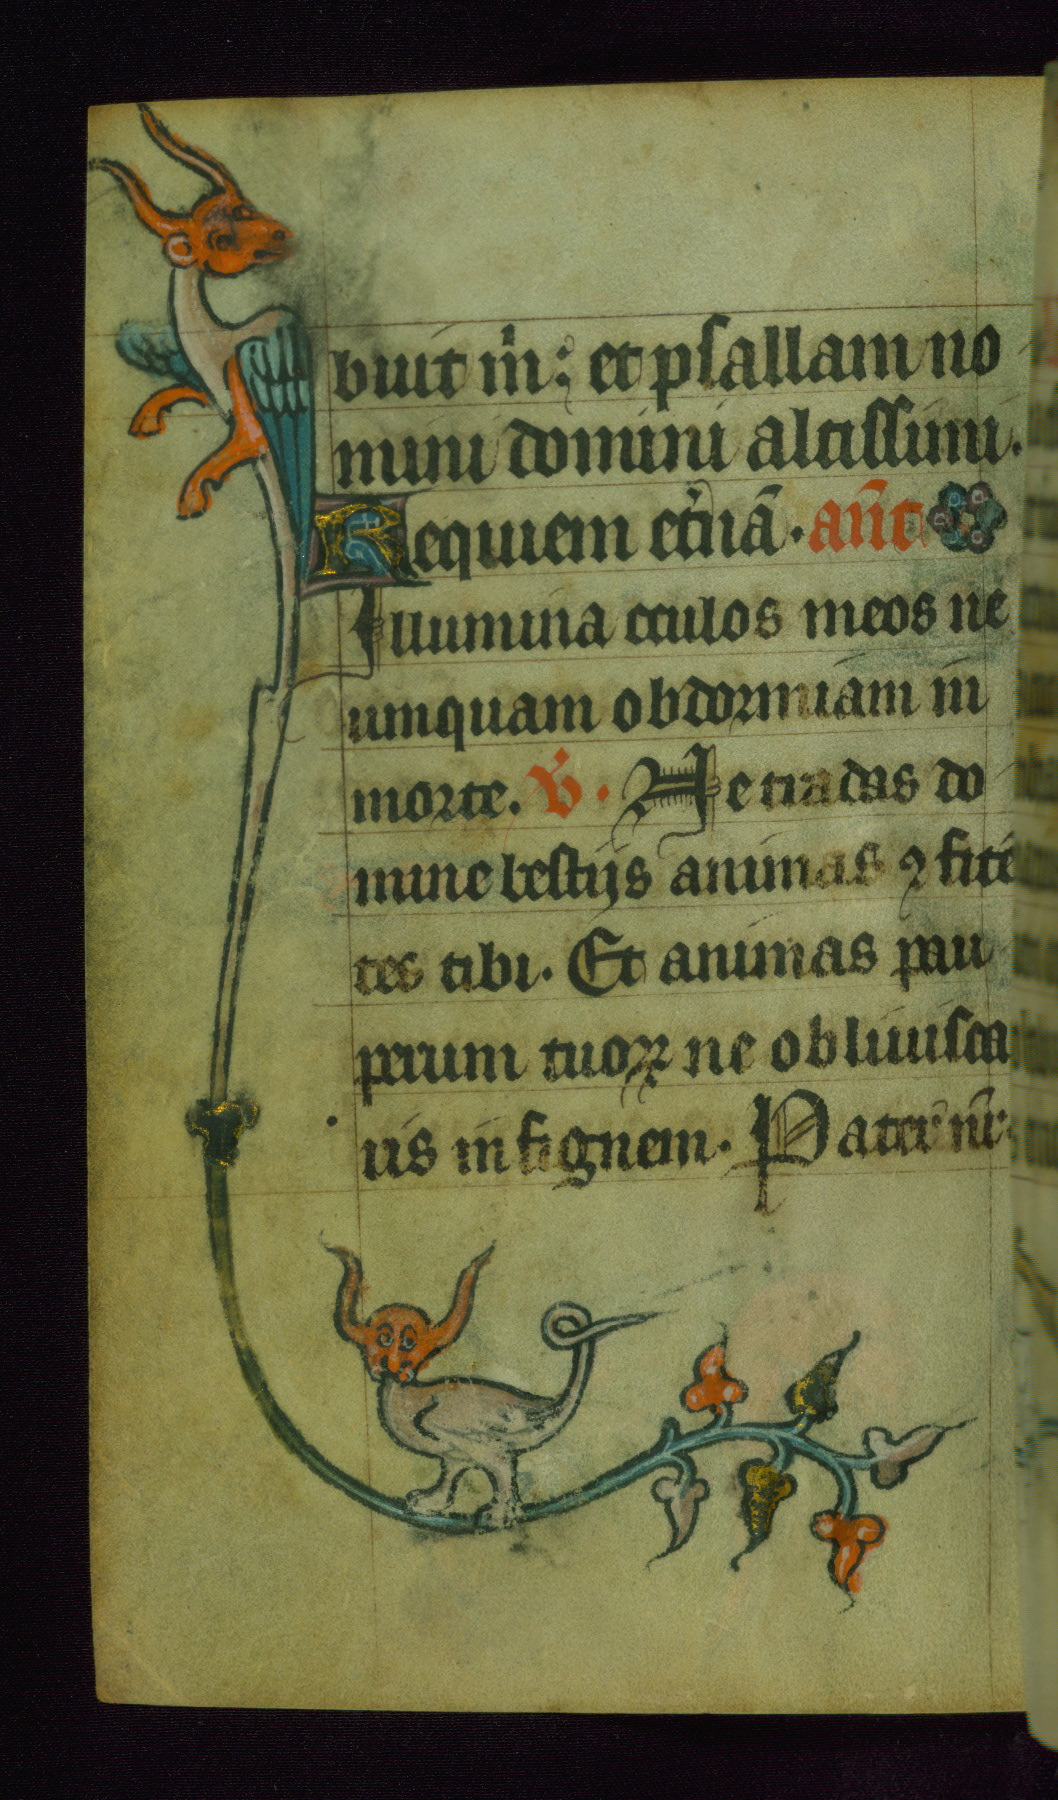 buit m̄: et psallam no
mini domini altissimi.
Requiem et̓nā. an̄t
Illumina oculos meos ne
umquam obdormiam in
morte. V̓. Ne tradas do
mine bestijs animas ꝯfitē
tes tibi. Et animas pau
perum tuoꝝ ne obliuisca
ris in finem. Pater nr̄